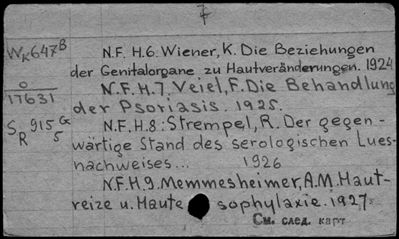 W K 647 B
N.F. H.6. Wiener, K. Die Beziehungen
der Genitalorgane zu Hautveränderungen. 1924
0
17631
N.F. H.7. Veiel, F. Die Behandlung
der Psoriasis. 1925.
S R 915 G 5
N.F. H.8: Strempel, R. Der gegen-
wärtige Stand des serologischen Lues-
nachweises... 1926
N.F. H.9. Memmesheimer, A.M. Haut-
reize u. Haute sophylaxie. 1927.
См. след. карт